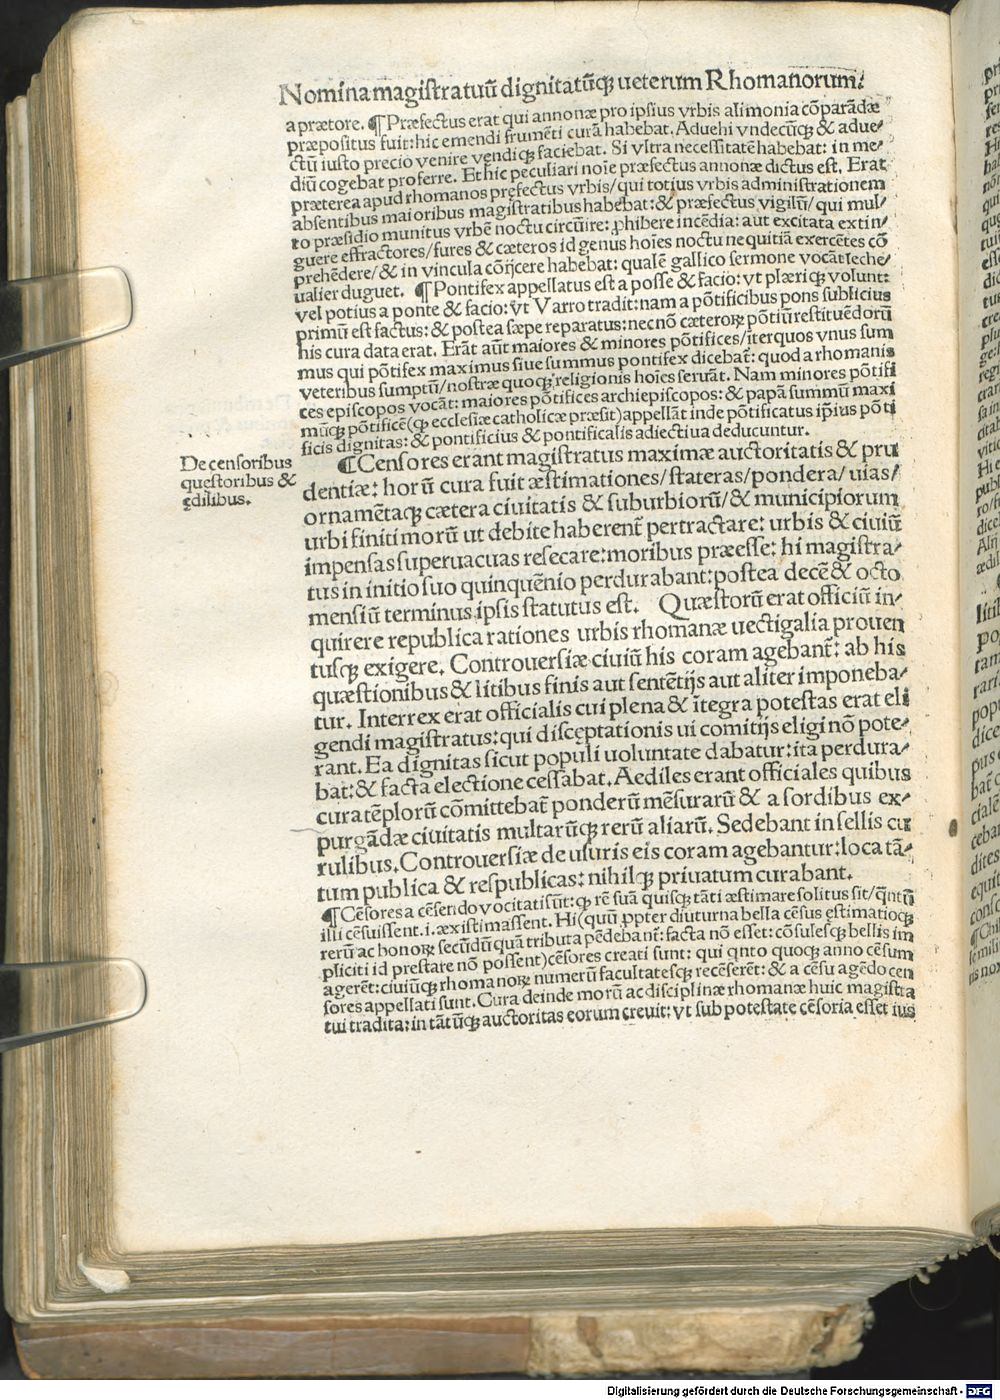 Nomina magiſtratuū dignitatūq̄ ueterum Rhomanorum.
a prætore. ¶Præfectus erat qui annonæ pro ipſius vrbis alimonia cōparādæ
præpoſitus fuit: hic emendi frumēti curā habebat. Aduehi vndecūq̄ & adue⸗
ctū iuſto precio venire vendiq̄ faciebat. Si vltra neceſſitatē habebat: in me⸗
diū cogebat proferre. Et hic peculiari noīe præfectus annonæ dictus eſt. Erat
præterea apud rhomanos pręfectus vrbis/ qui totius vrbis adminiſtrationem
abſentibus maioribus magiſtratibus habebat: & præfectus vigilū/ qui mul⸗
to præſidio munitus vrbē noctu circūire: ꝓhibere incēdia: aut excitata extin⸗
guere effractores/ fures & cæteros id genus hoīes noctu nequitiā exercētes cō
prehēdere/ & in vincula cōijcere habebat: qualē gallico ſermone vocāt leche⸗
ualier duguet. ¶Pontifex appellatus eſt a poſſe & facio: vt plæriq̄ volunt:
vel potius a ponte & facio: vt Varro tradit: nam a pōtificibus pons ſublicius
primū eſt factus: & poſtea ſæpe reparatus: necnō cæteroꝝ pōtiū reſtituēdorū
his cura data erat. Erāt aūt maiores & minores pōtifices/ īter quos vnus ſum
mus qui pōtifex maximus ſiue ſummus pontifex dicebat̄: quod a rhomanis
veteribus ſumptū/ noſtræ quoq̄ religionis hoīes ſeruāt. Nam minores pōtifi
ces epiſcopos vocāt: maiores pōtifices archiepiſcopos: & papā ſummū maxi
mūq̄ pōtificē (q̄ eccleſiæ catholicæ præſit) appellāt inde pōtificatus ip̄ius pōti
ficis dignitas: & pontificius & pontificalis adiectiua deducuntur.
De cenſoribus
queſtoribus &
ędilibus.
¶Cenſores erant magiſtratus maximæ auctoritatis & pru
dentiæ: horū cura fuit æſtimationes/ ſtateras/ pondera/ uias/
ornamētaq̄ cætera ciuitatis & ſuburbiorū/ & municipiorum
urbi finitimorū ut debite haberent̄ pertractare: urbis & ciuiū
impenſas ſuperuacuas reſecare: moribus præeſſe: hi magiſtra⸗
tus in initio ſuo quinquēnio perdurabant: poſtea decē & octo
menſiū terminus ipſis ſtatutus eſt. Quæſtorū erat officiū in⸗
quirere republica rationes urbis rhomanæ uectigalia prouen
tuſq̄ exigere. Controuerſiæ ciuiū his coram agebant̄: ab his
quæſtionibus & litibus finis aut ſentētijs aut aliter imponeba⸗
tur. Interrex erat officialis cui plena & ītegra poteſtas erat eli
gendi magiſtratus: qui diſceptationis ui comitijs eligi nō pote⸗
rant. Ea dignitas ſicut populi uoluntate dabatur: ita perdura⸗
bat: & facta electione ceſſabat. Aediles erant officiales quibus
cura tēplorū cōmittebat̄ ponderū mēſurarū & a ſordibus ex⸗
purgādæ ciuitatis multarūq̄ rerū aliarū. Sedebant in ſellis cu
rulibus. Controuerſiæ de uſuris eis coram agebantur: loca tā⸗
tum publica & reſpublicas: nihilq̄ priuatum curabant.
¶Cēſores a cēſendo vocitati ſūt: q̄ rē ſuā quiſq̄ tāti æſtimare ſolitus ſit/ q̄ntū
illi cēſuiſſent. i. æxiſtimaſſent. Hi (quū ꝓpter diuturna bella cēſus ęſtimatioq̄
rerū ac honoꝝ ſecūdū quā tributa pēdebant̄: facta nō eſſet: cōſuleſq̄ bellis im
pliciti id preſtare nō poſſent) cēſores creati ſunt: qui qnto quoq̄ anno cēſum
agerēt: ciuiūq̄ rhomanoꝝ numerū facultateſq̄ recēſerēt: & a cēſu agēdo cen
ſores appellati ſunt. Cura deinde morū ac diſciplinæ rhomanæ huic magiſtra
tui tradita: in tātūq̄ auctoritas eorum creuit: vt ſub poteſtate cēſoria eſſet ius
Digitalisierung gefördert durch die Deutsche Forschungsgemeinschaft - DFG